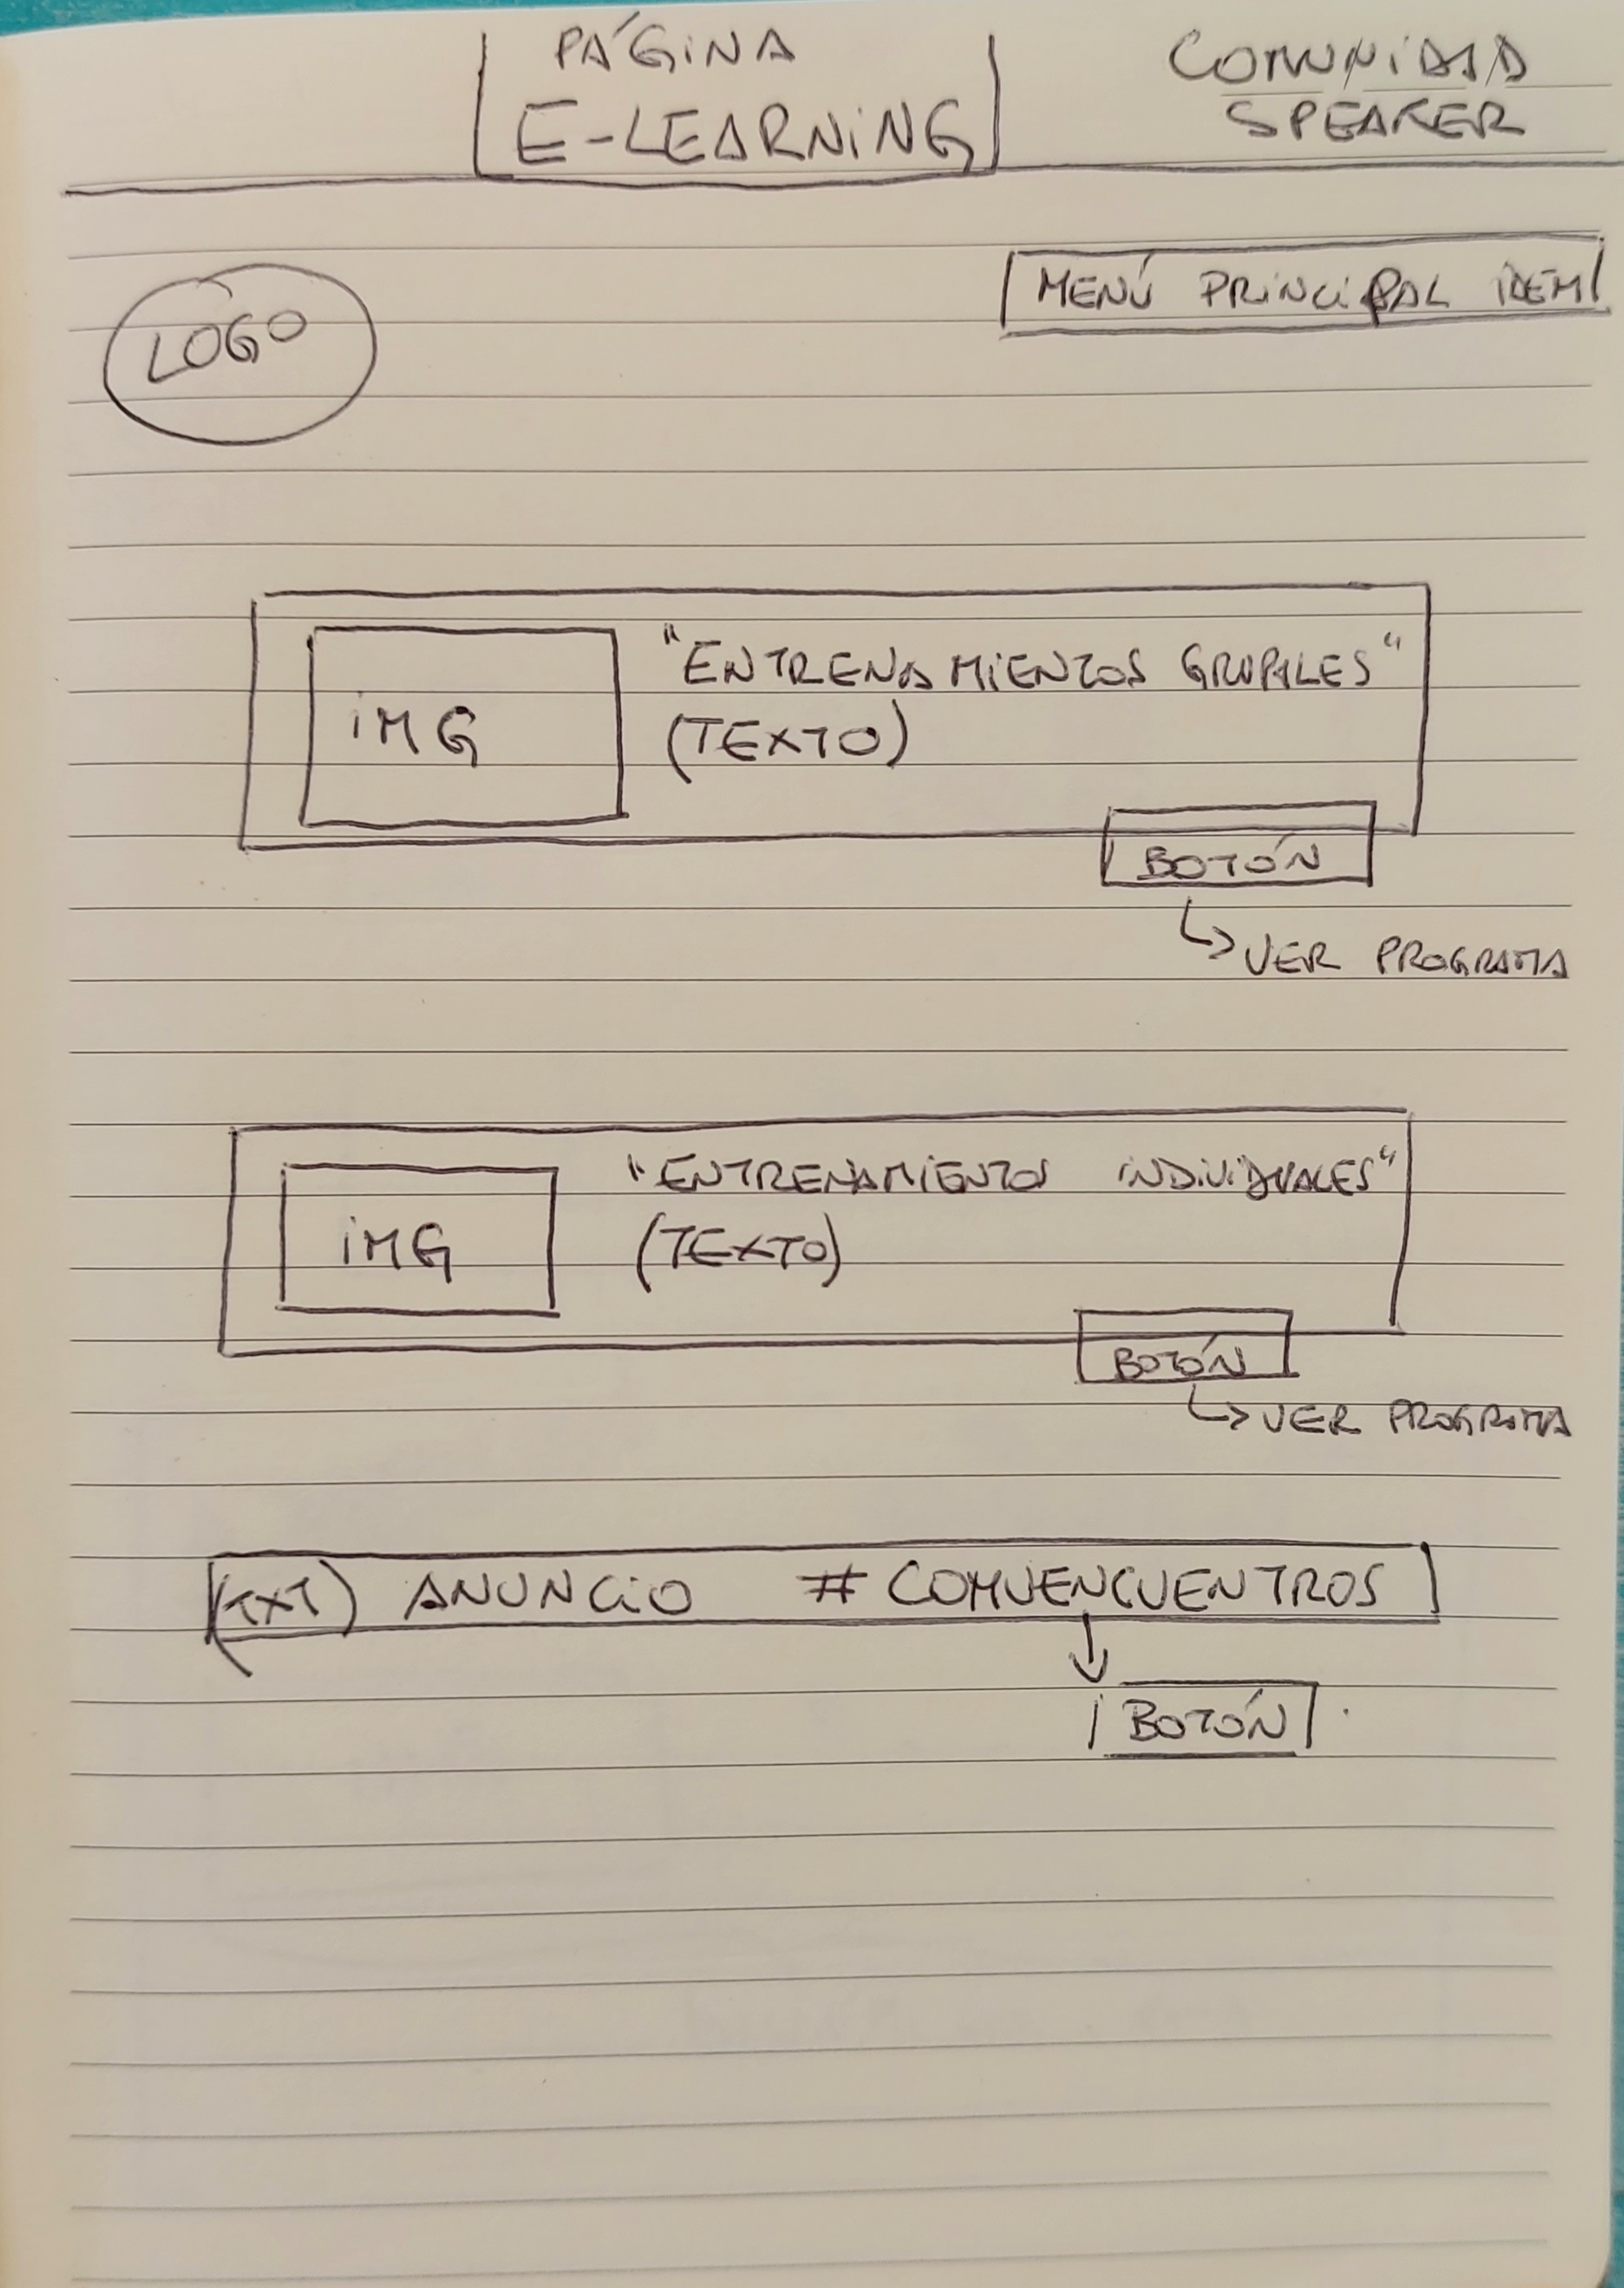 PÁGINA
E-LEARNING
COMUNIDAD
SPEAKER
MENÚ PRINCIPAL IDEM
LOGO
"ENTRENAMIENTOS GRUPALES"
IMG
(TEXTO)
BOTÓN
↳ VER PROGRAMA
"ENTRENAMIENTOS INDIVIDUALES"
IMG
(TEXTO)
BOTÓN
↳ VER PROGRAMA
(TXT) ANUNCIO # COMUENCUENTROS
BOTÓN